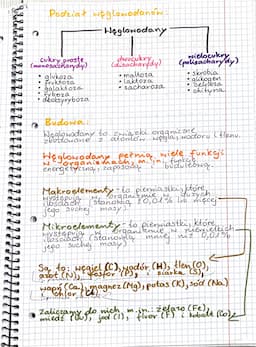 Podział węglowodanów:
Węglowodany
cukry proste dwucukry wielocukry
(monosacharydy) (disacharydy) (polisacharydy)
• glukoza • maltoza • skrobia
• fruktoza • laktoza • glikogen
• galaktoza • sacharoza • celuloza
• ryboza • chityna
• deoksyryboza
Budowa:
Węglowodany to związki organiczne
zbudowane z atomów węgla, wodoru i tlenu.
Węglowodany pełnią wiele funkcji
w organizmach, m.in. funkcję
energetyczną, zapasową budulcową.
Makroelementy - to pierwiastki, które
występują w organizmie w dużych
ilościach (stanowią 0,01% lub więcej
jego suchej masy)
Mikroelementy - to pierwiastki, które
występują w organizmie w niewielkich
ilościach (stanowią mniej niż 0,01%
jego suchej masy)
Są to: węgiel (C), wodór (H), tlen (O)
azot (N), fosfor (P) i siarka (S),
wapń (Ca), magnez (Mg), potas (K), sód (Na)
chlor
Zaliczamy do nich m.in.: żelazo (Fe),
miedź (Cu), jod (I), fluor (F) i kobalt (Co).